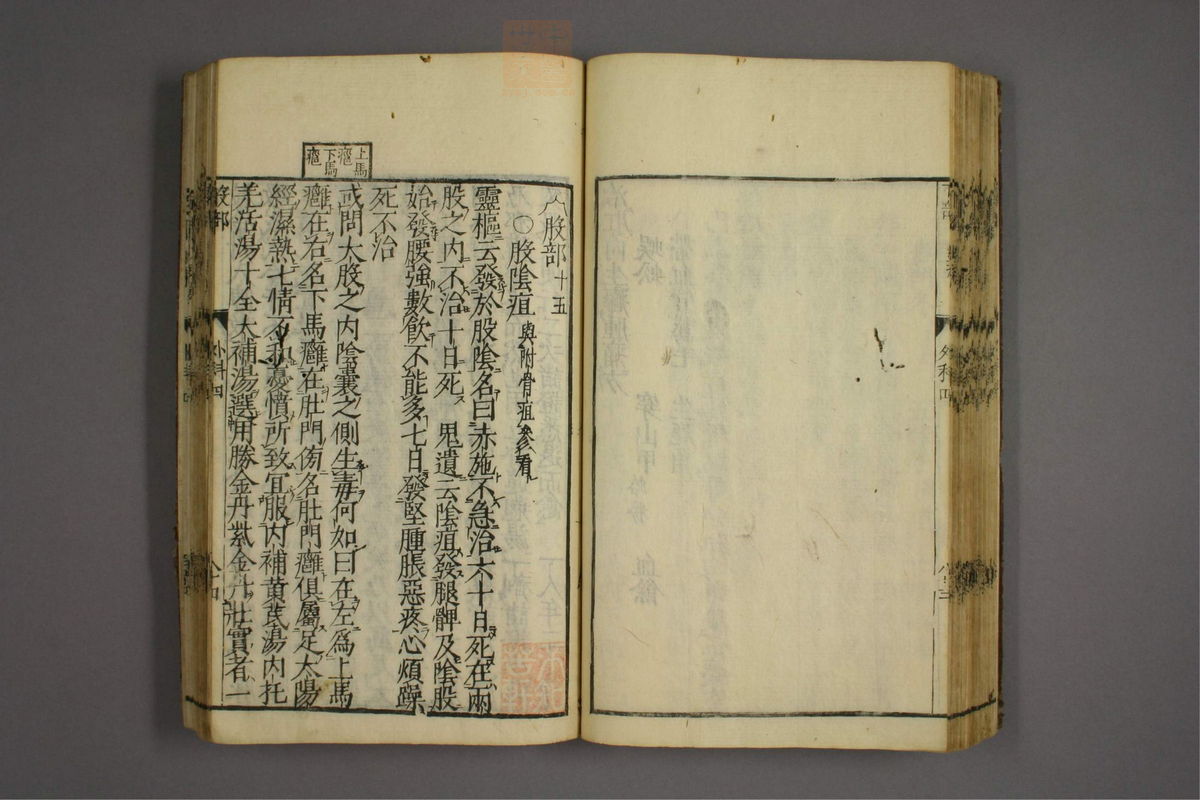 外科四
股部十五
○股陰疽與附骨疽參看
靈樞云發於股陰名曰赤施不急治六十日死在兩
股之内不治十日死 鬼遺云陰疽發腿髀及陰股
始發腰強數飲不能多七日發堅腫脹惡疼心煩躁
死不治
上馬
癰
下馬
癰
或問大股之内陰囊之側生毒何如曰在左爲上馬
癰在右名下馬癰在肚門傍名肚門癰俱屬足太陽
經濕熱七情不和憂憤所致宜服内補黄芪湯内托
羌活湯十全大補湯選用勝金丹紫金丹壯實者一
股部
外科四